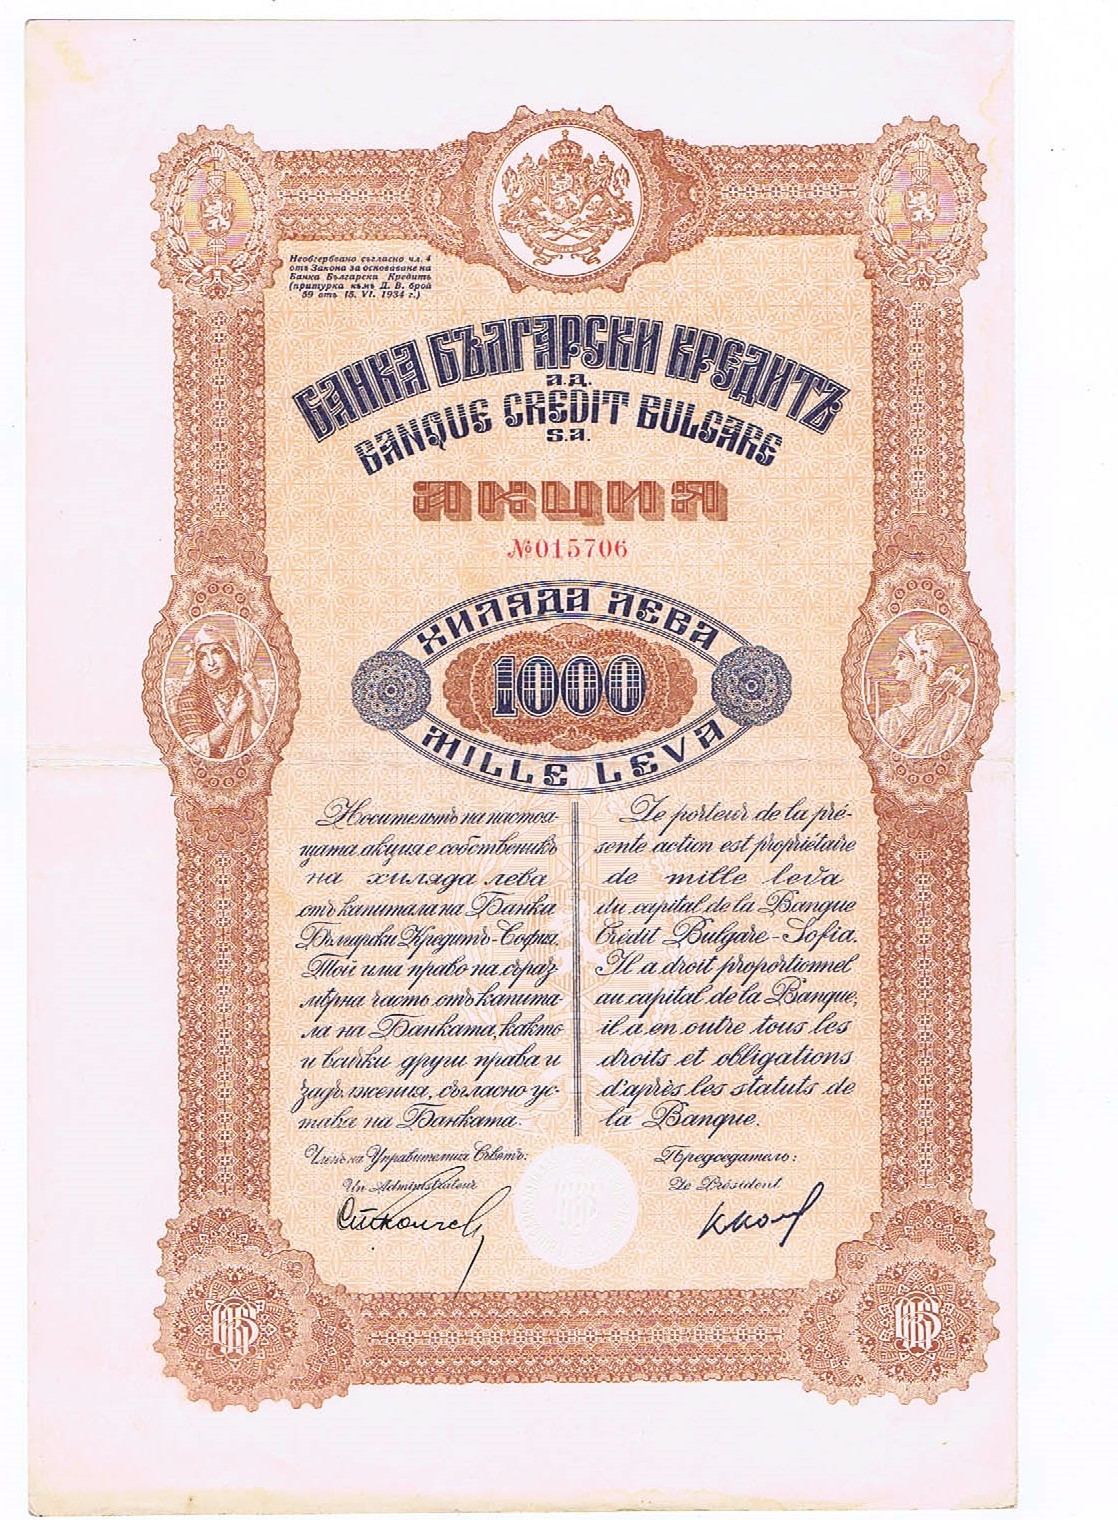 Необгербвано съгласно чл. 4
отъ Закона за основаване на
Банка Български Кредитъ
(притурка къмъ Д. В. брой
59 отъ 15. VI. 1934 г.)
БАНКА БЪЛГАРСКИ КРЕДИТЪ
А.Д.
BANQUE CREDIT BULGARE
S.A.
АКЦИЯ
№015706
ХИЛЯДА ЛЕВА
1000
MILLE LEVA
Носительтъ на настоя-
щата акция е собственикъ
на хиляда лева
отъ капитала на Банка
Български Кредитъ-София.
Той има право на сораз-
мѣрна часть отъ капита-
ла на Банката, както
и всички други права и
задължения, съгласно ус-
тава на Банката.
Le porteur de la pré-
sente action est propriétaire
de mille leva
du capital de la Banque
Crédit Bulgare-Sofia.
Il a droit proportionnel
au capital de la Banque,
il a en outre tous les
droits et obligations
d'après les statuts de
la Banque.
Членъ на Управителния Съветъ:
Un Administrateur
Председатель:
Le Président